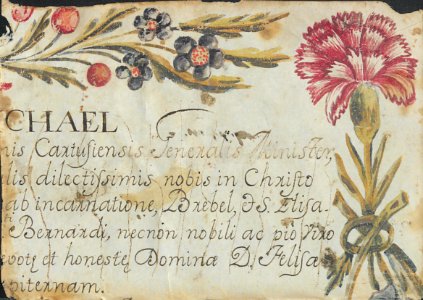 CHAEL
nis Cartusiensis Generalis Minister,
lis dilectissimis nobis in Christo
ab incarnatione, Brebel, & S. Elisa
Bernardi, necnon nobili ac pio Viro
evotę et honestę Dominæ D. Felisa
piternam.